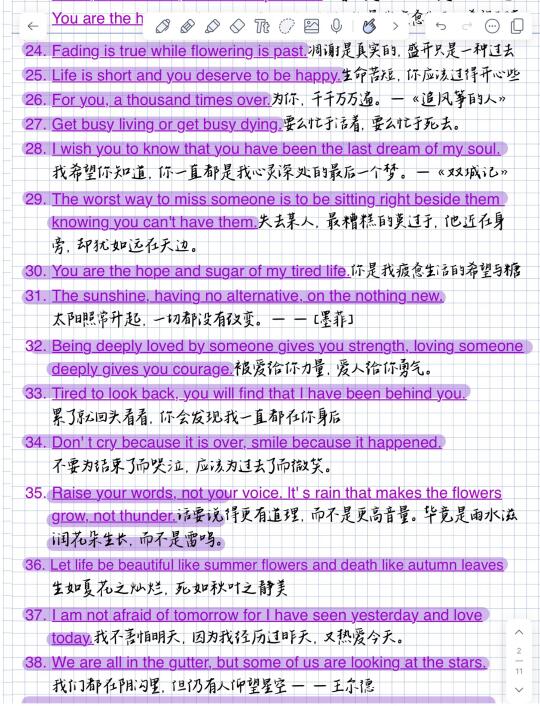 You are the h
24. Fading is true while flowering is past.凋谢是真实的, 盛开只是一种过去
25. Life is short and you deserve to be happy.生命苦短, 你应该过得开心些
26. For you, a thousand times over.为你, 千千万万遍。—《追风筝的人》
27. Get busy living or get busy dying.要么忙于活着, 要么忙于死去。
28. I wish you to know that you have been the last dream of my soul.
我希望你知道, 你一直都是我心灵深处的最后一个梦。—《双城记》
29. The worst way to miss someone is to be sitting right beside them
knowing you can't have them.失去某人, 最糟糕的莫过于, 他近在身
旁, 却犹如远在天边。
30. You are the hope and sugar of my tired life.你是我疲惫生活的希望与糖
31. The sunshine, having no alternative, on the nothing new.
太阳照常升起, 一切都没有改变。— —[墨菲]
32. Being deeply loved by someone gives you strength, loving someone
deeply gives you courage.被爱给你力量, 爱人给你勇气。
33. Tired to look back, you will find that I have been behind you.
累了就回头看看, 你会发现我一直都在你身后
34. Don' t cry because it is over, smile because it happened.
不要为结束了而哭泣, 应该为过去了而微笑。
35. Raise your words, not your voice. It' s rain that makes the flowers
grow, not thunder.话要说得更有道理, 而不是更高音量。毕竟是雨水滋
润花朵生长, 而不是雷鸣。
36. Let life be beautiful like summer flowers and death like autumn leaves
生如夏花之灿烂, 死如秋叶之静美
37. I am not afraid of tomorrow for I have seen yesterday and love
today.我不害怕明天, 因为我经历过昨天, 又热爱今天。
38. We are all in the gutter, but some of us are looking at the stars.
我们都在阴沟里, 但仍有人仰望星空— —王尔德
2
11